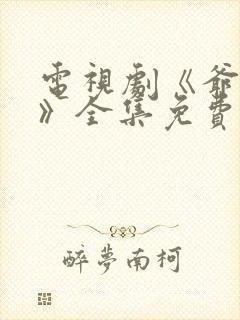 電視劇《爺
》全集免費
醉夢南柯